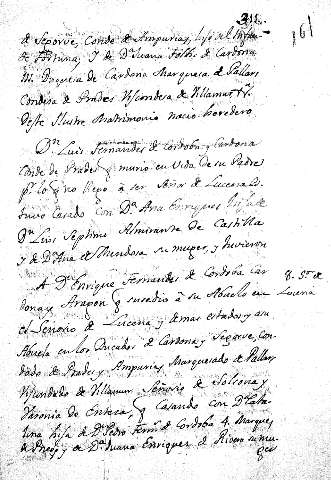 311.
161
de Segorve, Conde de Ampurias, hijo del Infan
te Fortuna, Y de Dª Juana Folch de Cardona
III Duquesa de Cardona Marquesa de Pallars
Condesa de Prades Viscondesa de Villamur &ª.
deste Ilustre Matrimonio nacio heredero
Dn Luis Fernandes de Cordoba y Cardona
Conde de Prades q murio en Vida de su Padre
pr lo q no llegó à ser Señor de Lucena Es
tuvo Casado con Dª Ana Enrriques hija de
Dn Luis Septimo Almirante de Castilla
y de Dª Ana de Mendosa su muger, y huvieron
A Dn Enrrique Fernandes de Cordoba Car
dona y Aragon q susedio à su Abuelo en
8. Sr. de
Lucena
el Señorio de Lucena y demas estados y a su
Abuela en los Ducados de Cardona y Segorve, Con
dado de Prades y Ampurias, Marquesado de Pallars
Viscondado de Villamur Señorio de Solsona y
Varonia de Entesa, q Casando con Dª Cata
lina hija de Dn Pedro Fernz de Cordoba 4. Marques
de Priego y de Dª Juana Enrriques de Rivera su mu
ger